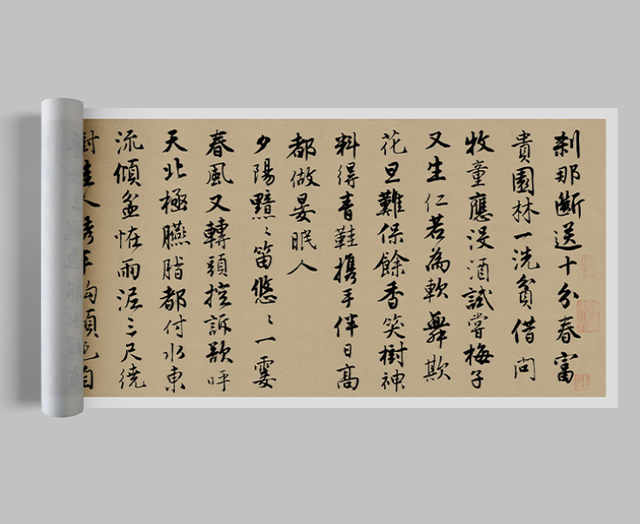 刹那斷送十分春富
貴園林一洗貧借問
牧童應沒酒試嘗梅子
又生仁若為軟舞欺
花旦難保餘香笑樹神
料得青鞋携手伴日高
都做晏眠人
夕陽黯〻笛悠〻一霎
春風又轉頭控訴欲呼
天北極臙脂都付水東
流傾盆怪雨泥三尺繞
樹佳人繡半鈎顏色自